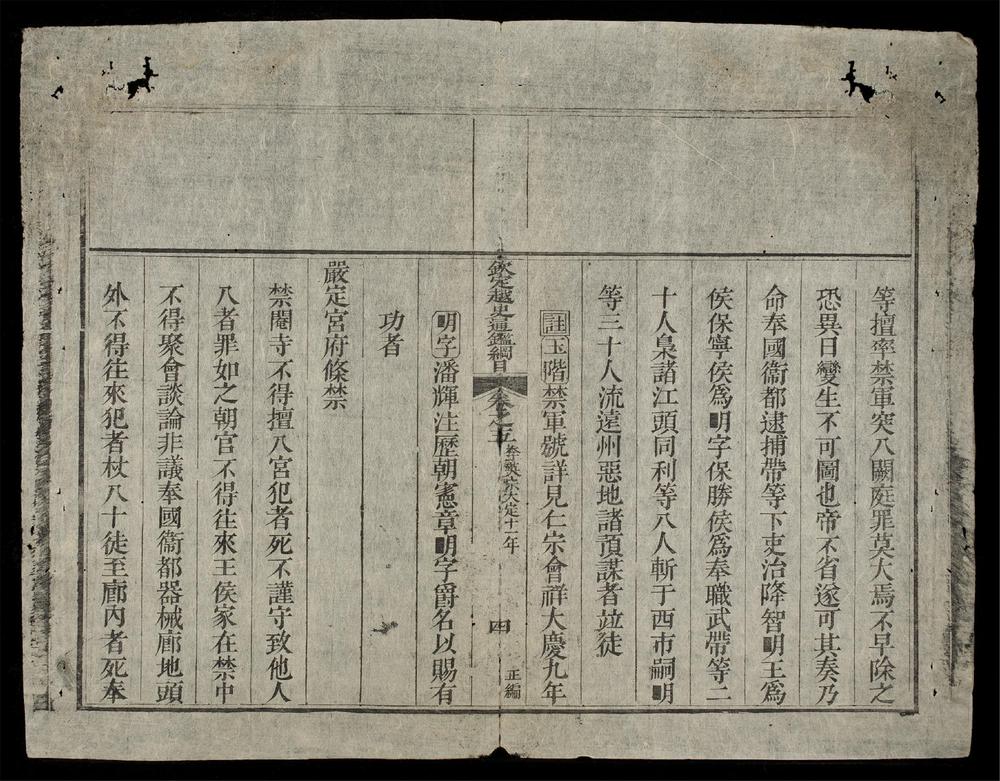 等擅率禁軍突入闕庭罪莫大焉不早除之
恐異日變生不可圖也帝不省遂可其奏乃
命奉國衞都逮捕帶等下吏治降智明王爲
侯保寧侯爲明字保勝侯爲奉職武帶等二
十人梟諸江頭同利等八人斬于西市嗣明
等三十人流遠州惡地諸預謀者竝徒
註玉階禁軍號詳見仁宗會祥大慶九年
欽定越史通鑑綱目 卷之五 李英宗大定十一年 四 正編
明字潘輝注歷朝憲章明字爵名以賜有
功者
嚴定宮府條禁
禁閹寺不得擅入宮犯者死不謹守致他人
入者罪如之朝官不得往來王侯家在禁中
不得聚會談論非議奉國衞都器械廊地頭
外不得往來犯者杖八十徒至廊內者死奉